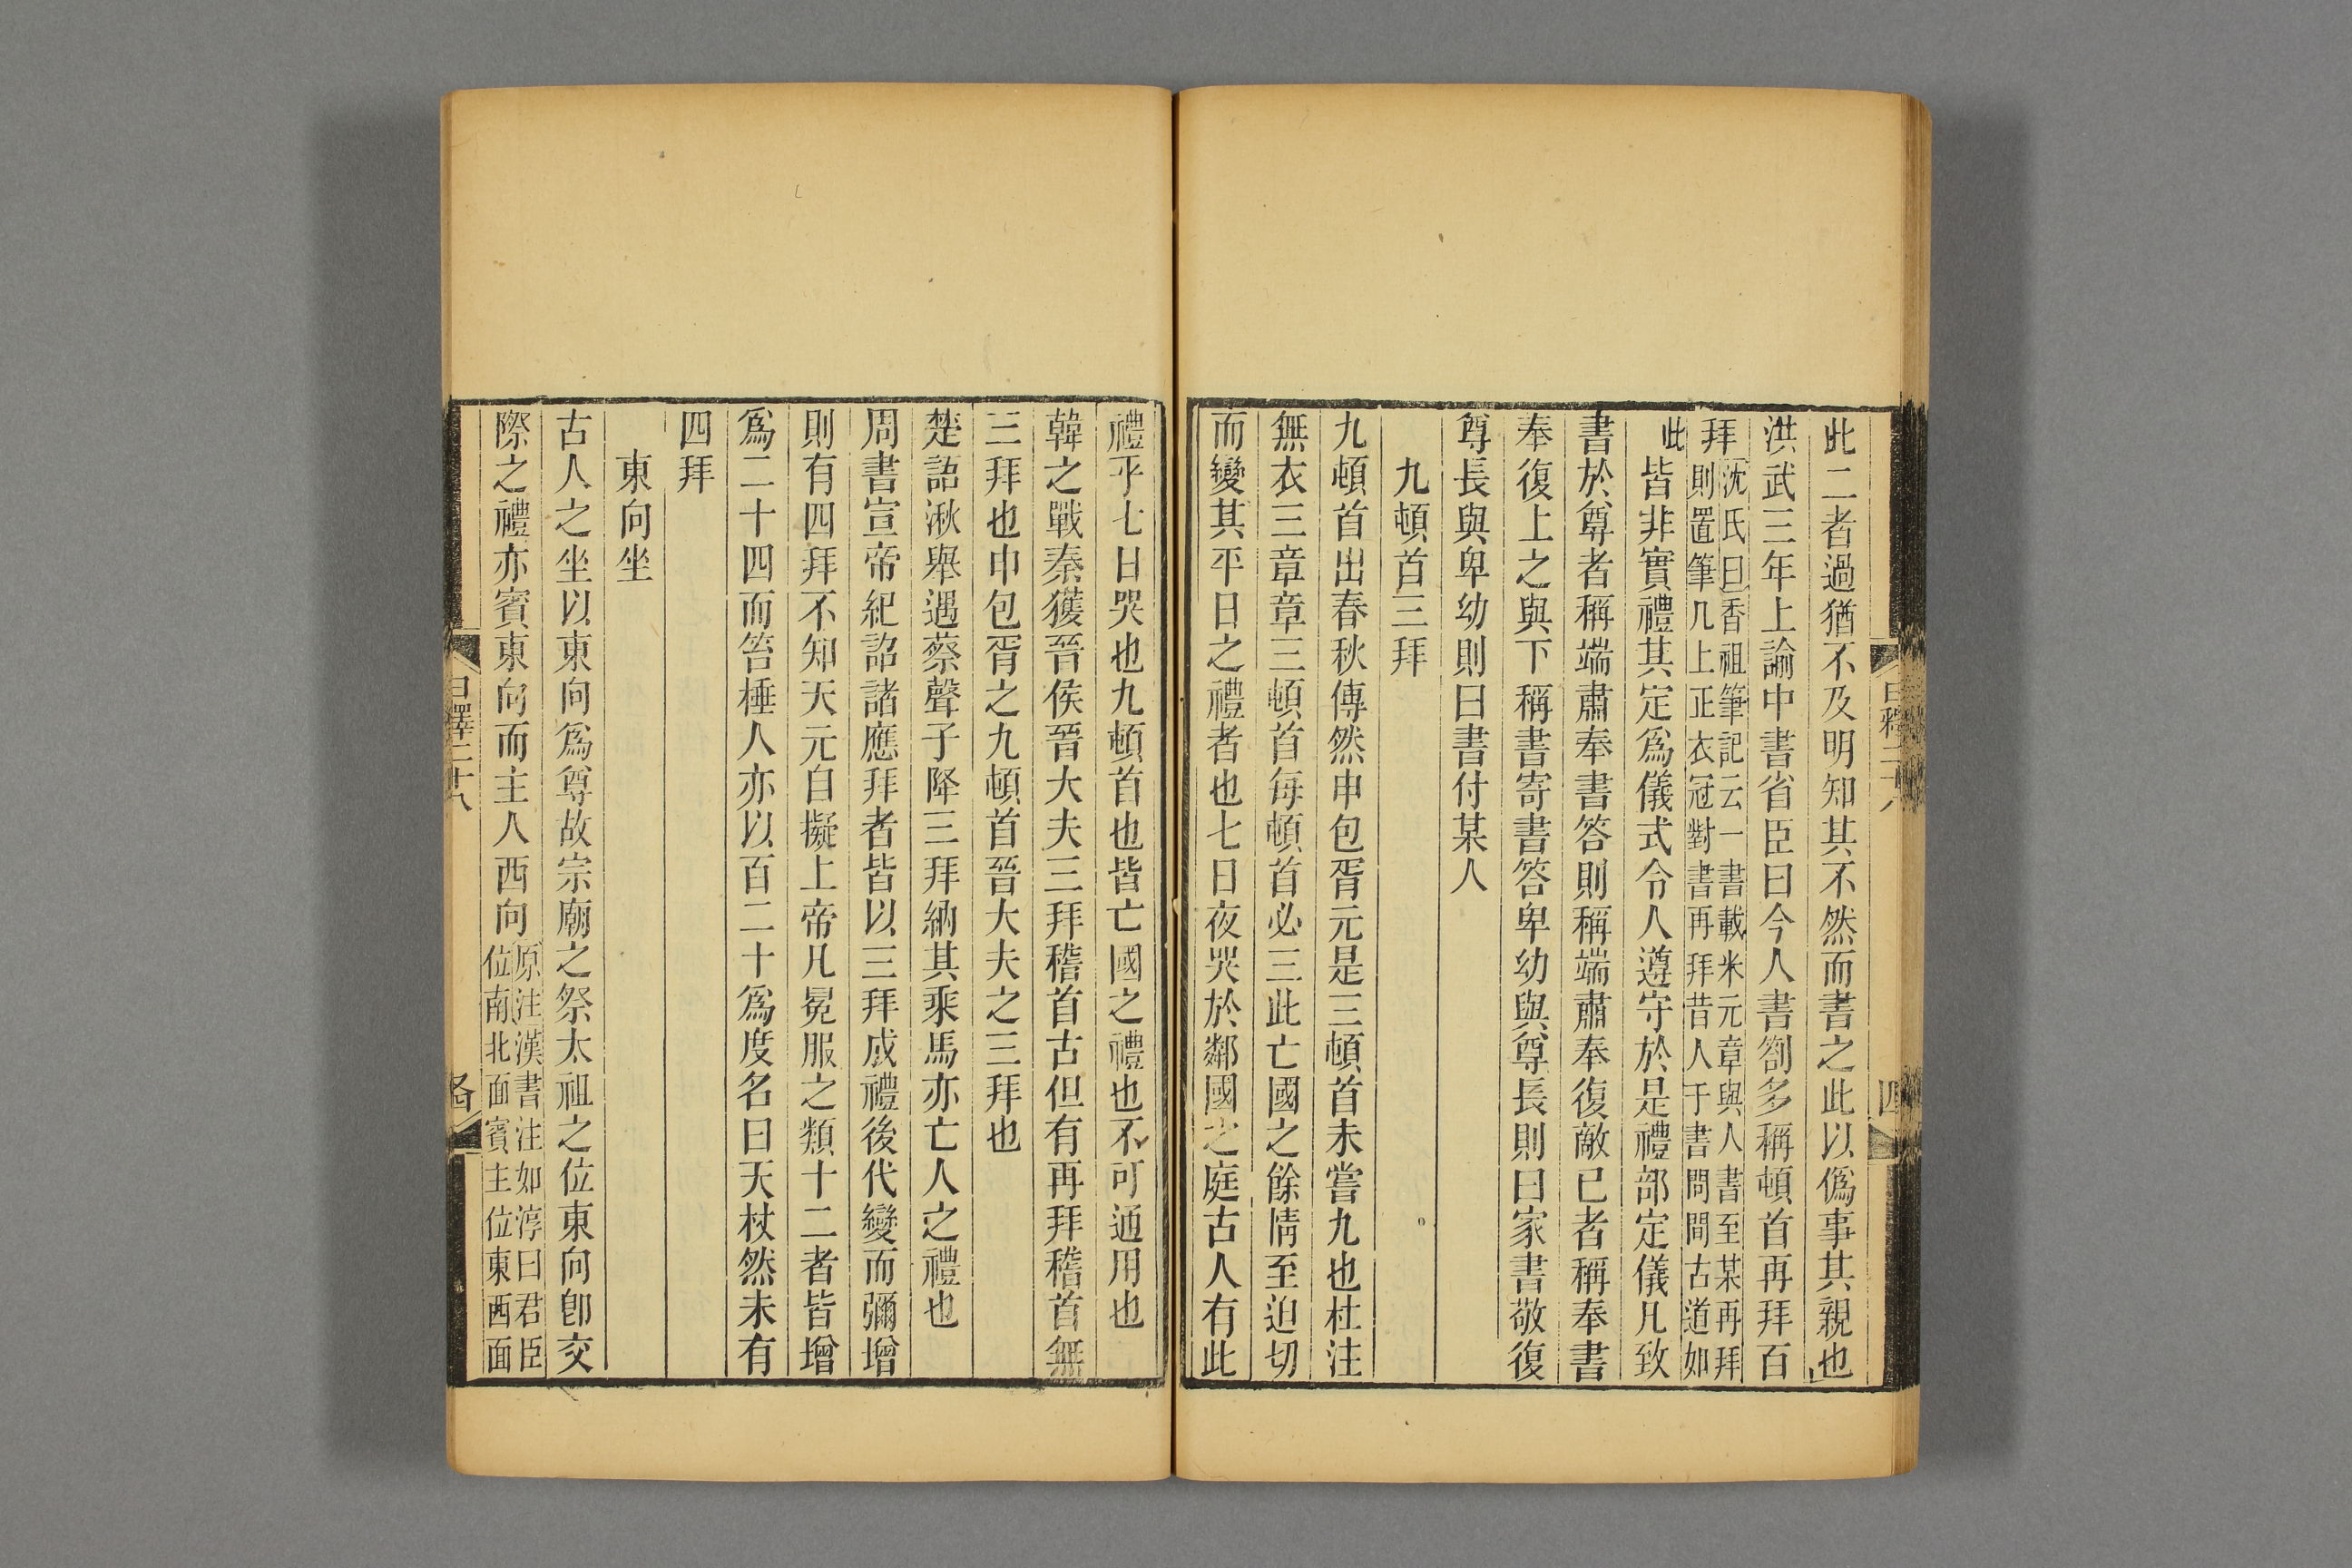 此二者過猶不及明知其不然而書之此以僞事其親也
洪武三年上諭中書省臣曰今人書劄多稱頓首再拜百
拜沈氏曰香祖筆記云一書載米元章與人書至某再拜
則置筆几上正衣冠對書再拜昔人于書問間古道如
此皆非實禮其定爲儀式令人遵守於是禮部定儀凡致
書於尊者稱端肅奉書答則稱端肅奉復敵已者稱奉書
奉復上之與下稱書寄書答卑幼與尊長則曰家書敬復
尊長與卑幼則曰書付某人
九頓首三拜
九頓首出春秋傳然申包胥元是三頓首未嘗九也杜注
無衣三章章三頓首每頓首必三此亡國之餘情至迫切
而變其平日之禮者也七日夜哭於鄰國之庭古人有此
日釋二十八
四
禮乎七日哭也九頓首也皆亡國之禮也不可通用也
韓之戰秦獲晉侯晉大夫三拜稽首古但有再拜稽首無
三拜也申包胥之九頓首晉大夫之三拜也
楚語湫舉遇蔡聲子降三拜納其乘馬亦亡人之禮也
周書宣帝紀詔諸應拜者皆以三拜成禮後代變而彌增
則有四拜不知天元自擬上帝凡冕服之類十二者皆增
爲二十四而笞棰人亦以百二十爲度名曰天杖然未有
四拜
東向坐
古人之坐以東向爲尊故宗廟之祭太祖之位東向卽交
際之禮亦賓東向而主人西向原注漢書注如淳曰君臣
位南北面賓主位東西面
日釋二十八